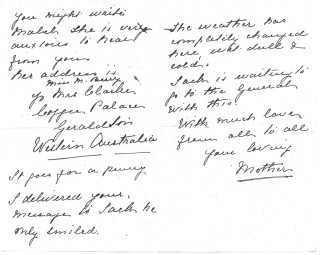 you might write
Mabel she is very
anxious to hear
from you
her address is
Miss M.
c/o Mrs Clarke
Coffee Palace
Geraldton
Western Australia
It goes for a penny
I delivered your
message to Jack he
only smiled.
The weather has
completely changed
here, wet dull &
cold.
Jack is waiting to
go to the General
with this.
With much love
from all to all
your loving
Mother